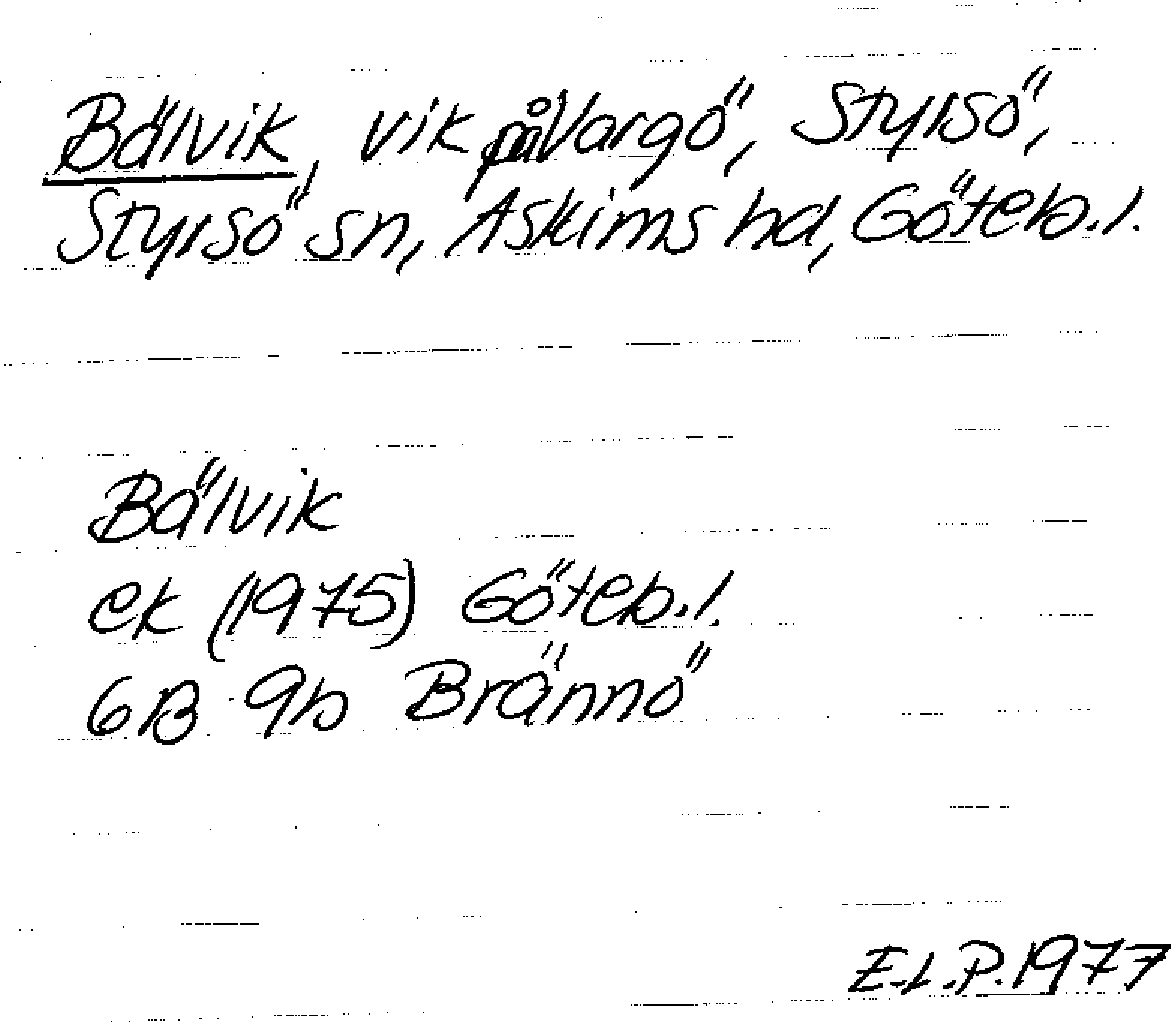 Bälvik, vik på Vargö, Styrsö,
Styrsö sn, Askims hd, Göteb.l.
Bälvik
ek (1975) Göteb.l.
6B 9b Brännö
E.L.P. 1977